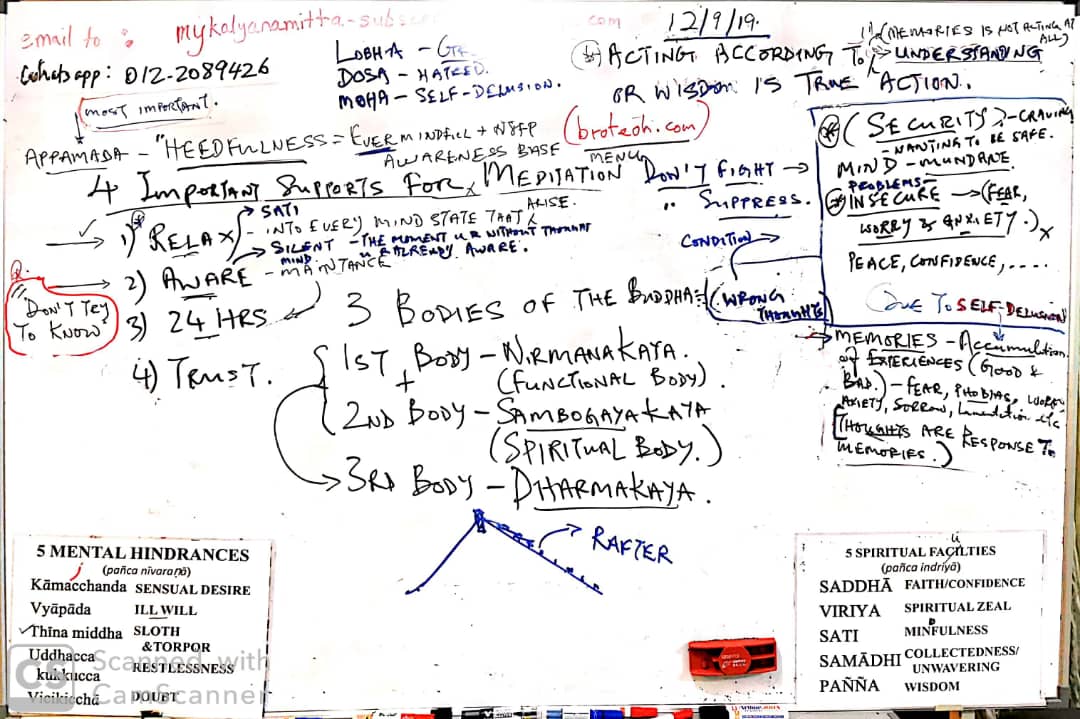 Email to : mykalyanamitta-subscr com
Whatsapp : 012-2089426
(most IMPORTANT.
LOBHA -
DOSA - HATRED.
MOHA - SELF-DELUSION.
12/9/19.
(MEMORIES IS NOT ACTING AT ALL)
ACTING ACCORDING TO UNDERSTANDING
OR WISDOM IS TRUE ACTION.
APPAMADA - "HEEDFULNESS = EVER MINDFULL +
AWARENESS BASE
(broteoh.com)
MENU
4 IMPORTANT SUPPORTS FOR MEDITATION
1) RELAX
SATI
- INTO EVERY MIND STATE THAT ARISE.
SILENT MIND - THE MOMENT U R WITHOUT THOUGHT
U R ALREADY AWARE.
2) AWARE - MAINTANCE
3) 24 HRS
4) TRUST.
"DON'T TRY
TO KNOW"
DON'T FIGHT →
" SUPPRESS.
CONDITION →
(WRONG
THOUGHTS)
(SECURITY) - CRAVING
- WANTING TO BE SAFE.
MIND - MUNDANE
PROBLEMS -
INSECURE → (FEAR,
WORRY & ANXIETY.)
PEACE, CONFIDENCE, ....
DUE TO SELF-DELUSION
MEMORIES - Accumulation
of EXPERIENCES (GOOD &
BAD.) - FEAR, PHOBIAS, WORRY
AXIETY, SORROW, Lamentation etc
[THOUGHTS ARE RESPONSE TO
MEMORIES.)
3 BODIES OF THE BUDDHA:
1ST BODY - NIRMANAKAYA.
+ (FUNCTIONAL BODY).
2ND BODY - SAMBOGAYAKAYA
(SPIRITUAL BODY.)
→ 3RD BODY - DHARMAKAYA.
→ RAFTER
5 MENTAL HINDRANCES
(pañca nīvaraṇā)
Kāmacchanda SENSUAL DESIRE
Vyāpāda ILL WILL
Thīna middha SLOTH
&TORPOR
Uddhacca
kukkucca RESTLESSNESS
Vicikicchā DOUBT
CS Scanned with
CamScanner
5 SPIRITUAL FACILTIES
(pañca indriyā)
SADDHĀ FAITH/CONFIDENCE
VIRIYA SPIRITUAL ZEAL
SATI MINFULNESS
SAMĀDHI COLLECTEDNESS/
UNWAVERING
PAÑÑA WISDOM